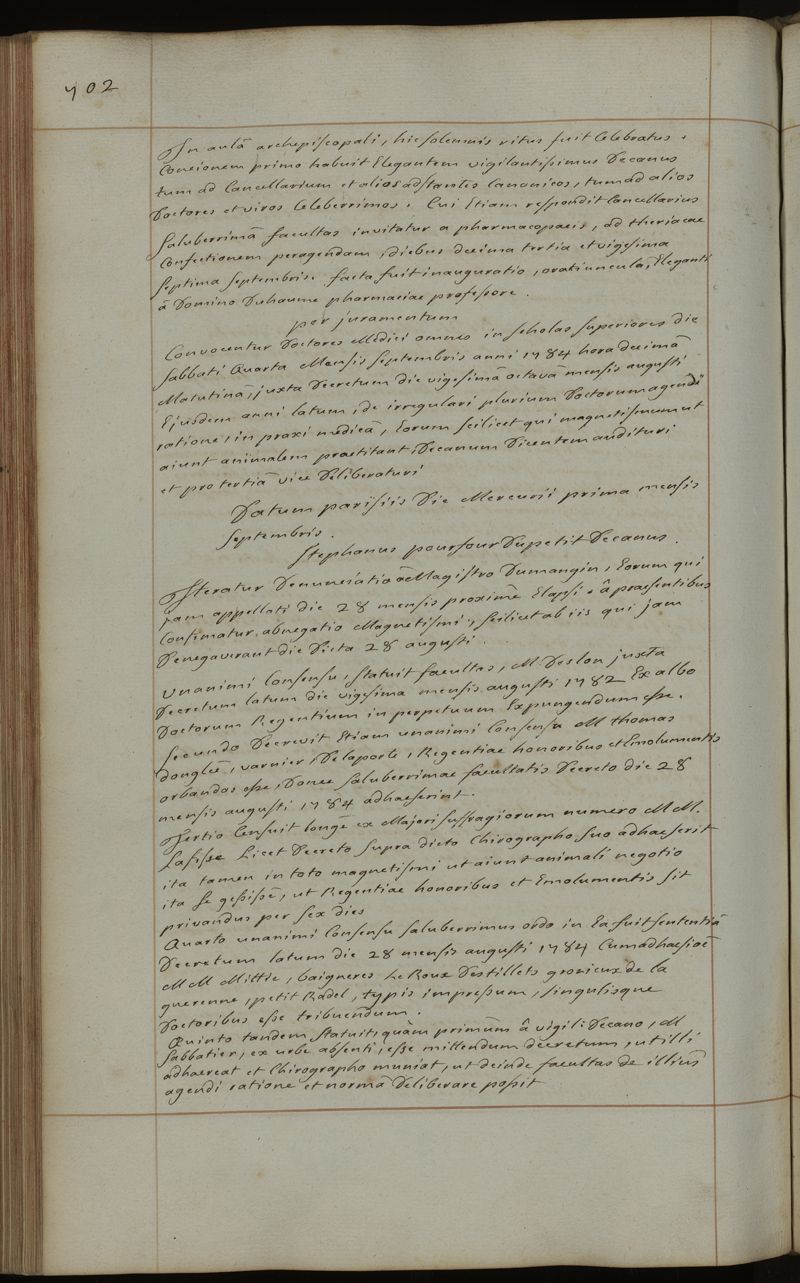 702
In aulâ archepiscopali, hic solemnis ritus fuit Celebratus.
Concionem primo habuit Elegantem vigilantissimus Decanus
tum ad Cancellarium et alios adstantes Canonicos, tum ad alios
Doctores et viros Celeberrimos. Cui Etiam respondit Cancellarius
Saluberrimâ facultas invitatur a pharmacopaeis, ad theriacae
Confectionem peragendam, diebus decima tertia et vigesima
septima septembris. facta fuit inauguratio, oratiuncula, Eleganti
â Domino Duhaume pharmaciae professore.
per juramentum
Convocentur Doctores Medici omnes in scholas superiores die
sabbati Quarta Mensis septembris anni 1784 hora decimâ
Matutinâ, juxta Decretum die vigesimâ octavâ mensis augusti
Ejusdem anni latum, de irregulari plurium Doctorum agendi
ratione, in praxi medicâ, Eorum scilicet qui magnetismum ut
aiunt animalem practitant, Decanum Dicentem audituri
et pro tertiâ vice Deliberaturi
Datum parisiis Die Mercurii prima mensis
septembris.
Stephanus pourfour Dupetit Decanus.
Iteratur Denunciatio â Magistro Dumangin, Eorum qui
jam appellati die 28 mensis proximè Elapsi. â praesentibus
Confirmatur abnegatio Magnetismi, scilicet ab iis qui jam
Denegaverant die Dicta 28 augusti.
Unanimi Consensu, statuit facultas, M. Deslon juxta
Decretum latum die vigesima mensis augusti 1782 Ex albo
Doctorum Regentium in perpetuum Expungendum esse.
secundo Decrevit Etiam unanimi Consensu MM thomas
douglé, varnier, Delaporte, Regentiae honoribus et Emolumentis
orbandos esse, Donec saluberrimae facultatis Decreto die 28
mensis augusti 1784 adhaeserint.
Tertio Censuit longè ex Majori suffragiorum numero MM.
Lafisse Licet Decreto supra dicto Chirographo suo adhaeserit
ita tamen in toto magnetismi ut aiunt animali negotio
ita se gessisse, ut Regentiae honoribus et Emolumentis sit
privandus per sex dies
Quarto unanimi Consensu saluberrimus ordo in Ea fuit sententiâ
Decretum latum die 28 mensis augusti 1784 Cum adhaesioe
MM Mittie, baigneres LeRoux Destillets de la
guerenne, petit Radel, typis impressum, singulisque
Doctoribus esse tribuendum.
Quinto tandem statuit, quàm primùm â vigili Decano, M
sabbatier, ex urbe absenti, esse mittendum decretum, ut illi
adhaereat et Chirographo muniat, ut deinde facultas de illius
agendi ratione et normâ Deliberare possit